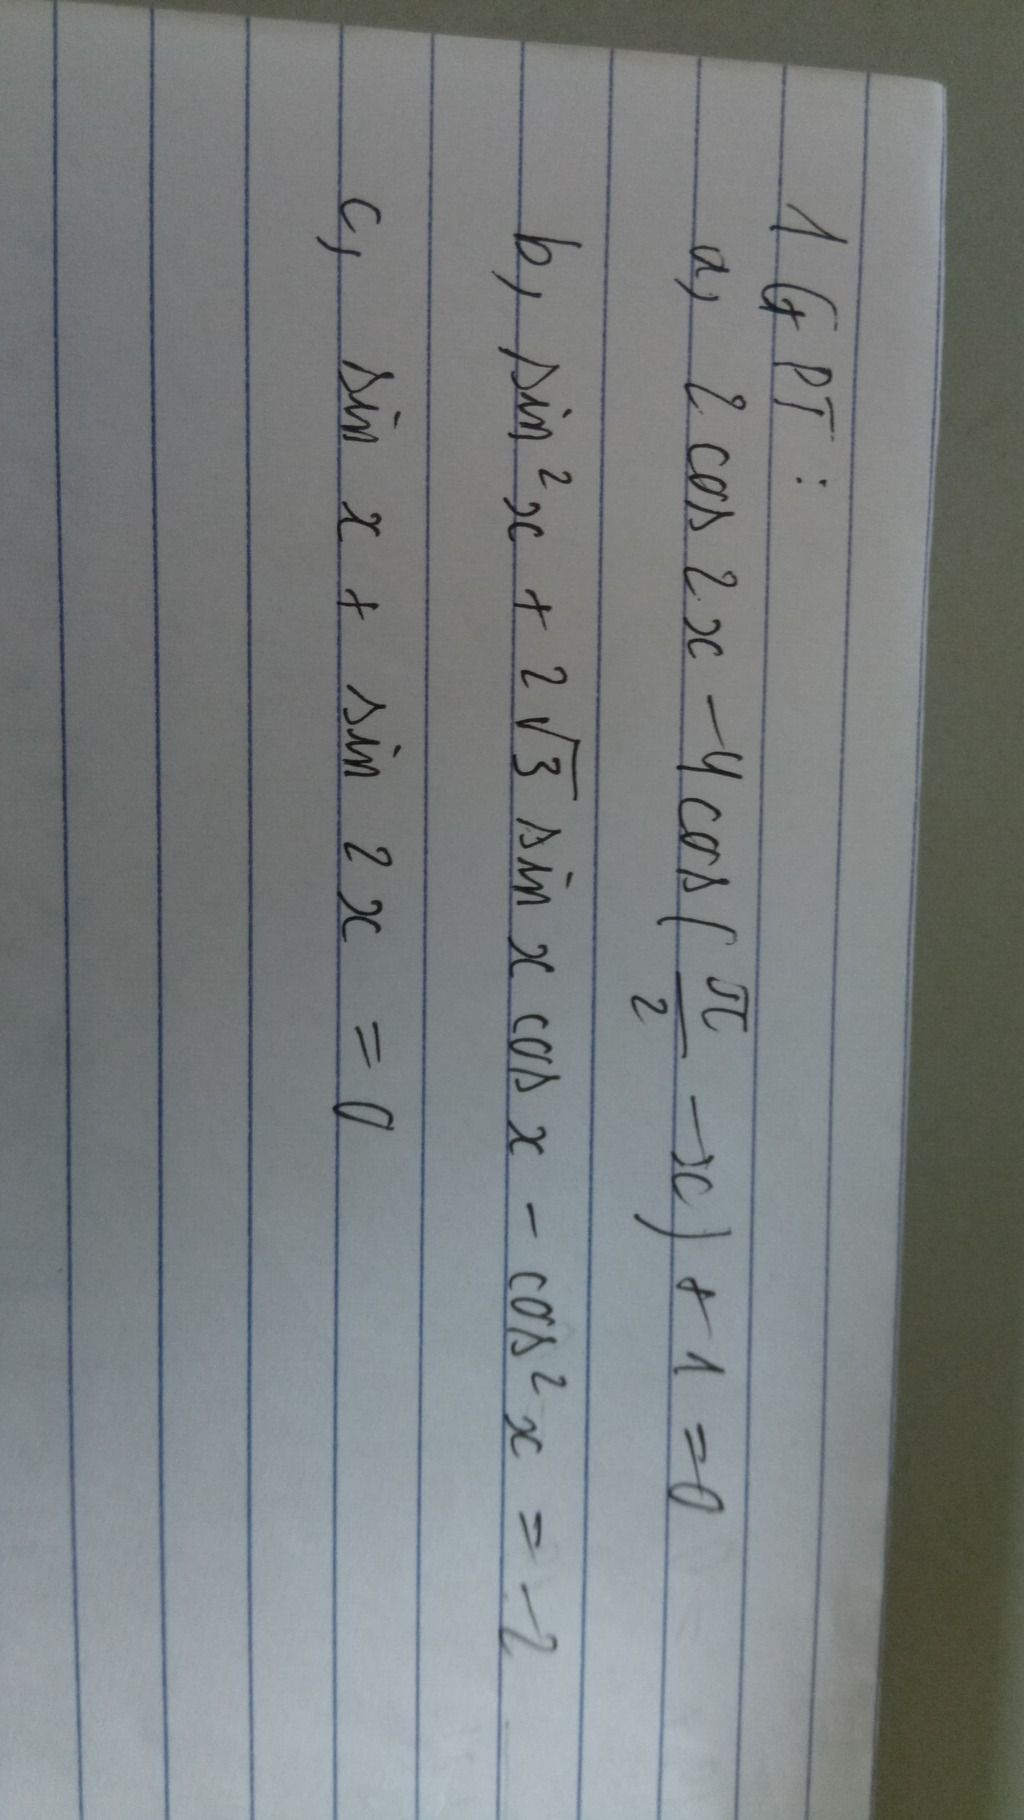 1 GPT:
a, 2 cos 2x - 4cos(π/2 - x) + 1 = 0
b, sin²x + 2√3 sin x cos x - cos²x = -2
c, sin x + sin 2x = 0